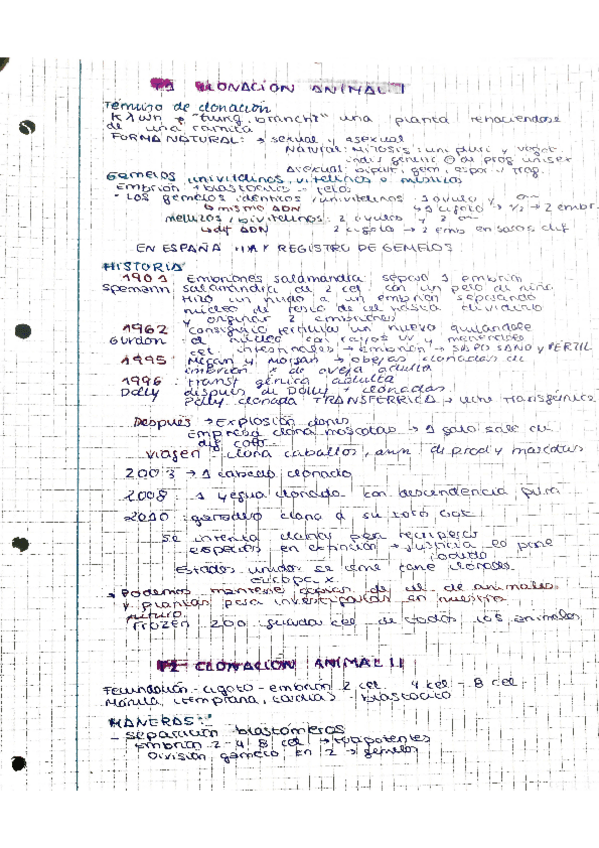 T1 CLONACIÓN ANIMAL I
Término de clonación
Κλων → "twing, branch?" una planta renaciéndose
de una ramita
FORMA NATURAL: → sexual y asexual
Natural: mitosis: uni pluri y veget.
indis genetic de prog uniser
Asexual: bipart, gem, espor y frag.
Gemelos univitelinos, vitelinos o
Embrión → blastocisto → feto
- Los gemelos idénticos, univitelinos: 1 óvulo y
↳ mismo ADN → 1 cigoto → 1/2 → 2 embr.
Mellizos, bivitelinos: 2 óvulos y 2
↳ dif ADN 2 cigoto → 2 emb en sacos dif
EN ESPAÑA HAY REGISTRO DE GEMELOS
HISTORIA
1901 Embriones salamandra: separó 1 embrión
Spemann salamandra de 2 cel con un pelo de niño
Hizo un nudo a un embrión separando
núcleo de resto de cel hasta dividirlo
y originar 2 embriones
1962 Consiguió fertilizar un huevo quitandole
Gurdon el núcleo con rayos uv y meterles
cel intestinales → embrión → SAPO SANO y FERTIL
1995 Megan y Morgan → ovejas clonadas de
embrión de oveja adulta
1996 transf génica adulta
Dolly después de Dolly + clonadas
Polly clonada TRANSFERRICA → leche transgénica
Después → Explosión clones
Empresa clona mascotas → 1 gato sale de
dif color
viagen clona caballos, anim de prod y mascotas
2003 → 1 caballo clonado
2008 1 yegua clonada con descendencia pura
2010 ganadero clona a su toro
se intenta clonar para recuperar
especies en extinción → justicia lo pone
Estados unidos se come carne clonados
europa x.
→ Podemos mantener copias de cel de animales
y plantas para investigarlas en nuestro
futuro
Frozen zoo guarda cel de todos los animales
T2 CLONACIÓN ANIMAL II
Fecundación - cigoto - embrión 2 cel 4 cel - 8 cel
Mórula (temprana, tardía) - blastocito
MANERAS:
- separación blastómeros
Embrión 2-4 8 cel → totipotentes
División gameto en 2 → gemelos